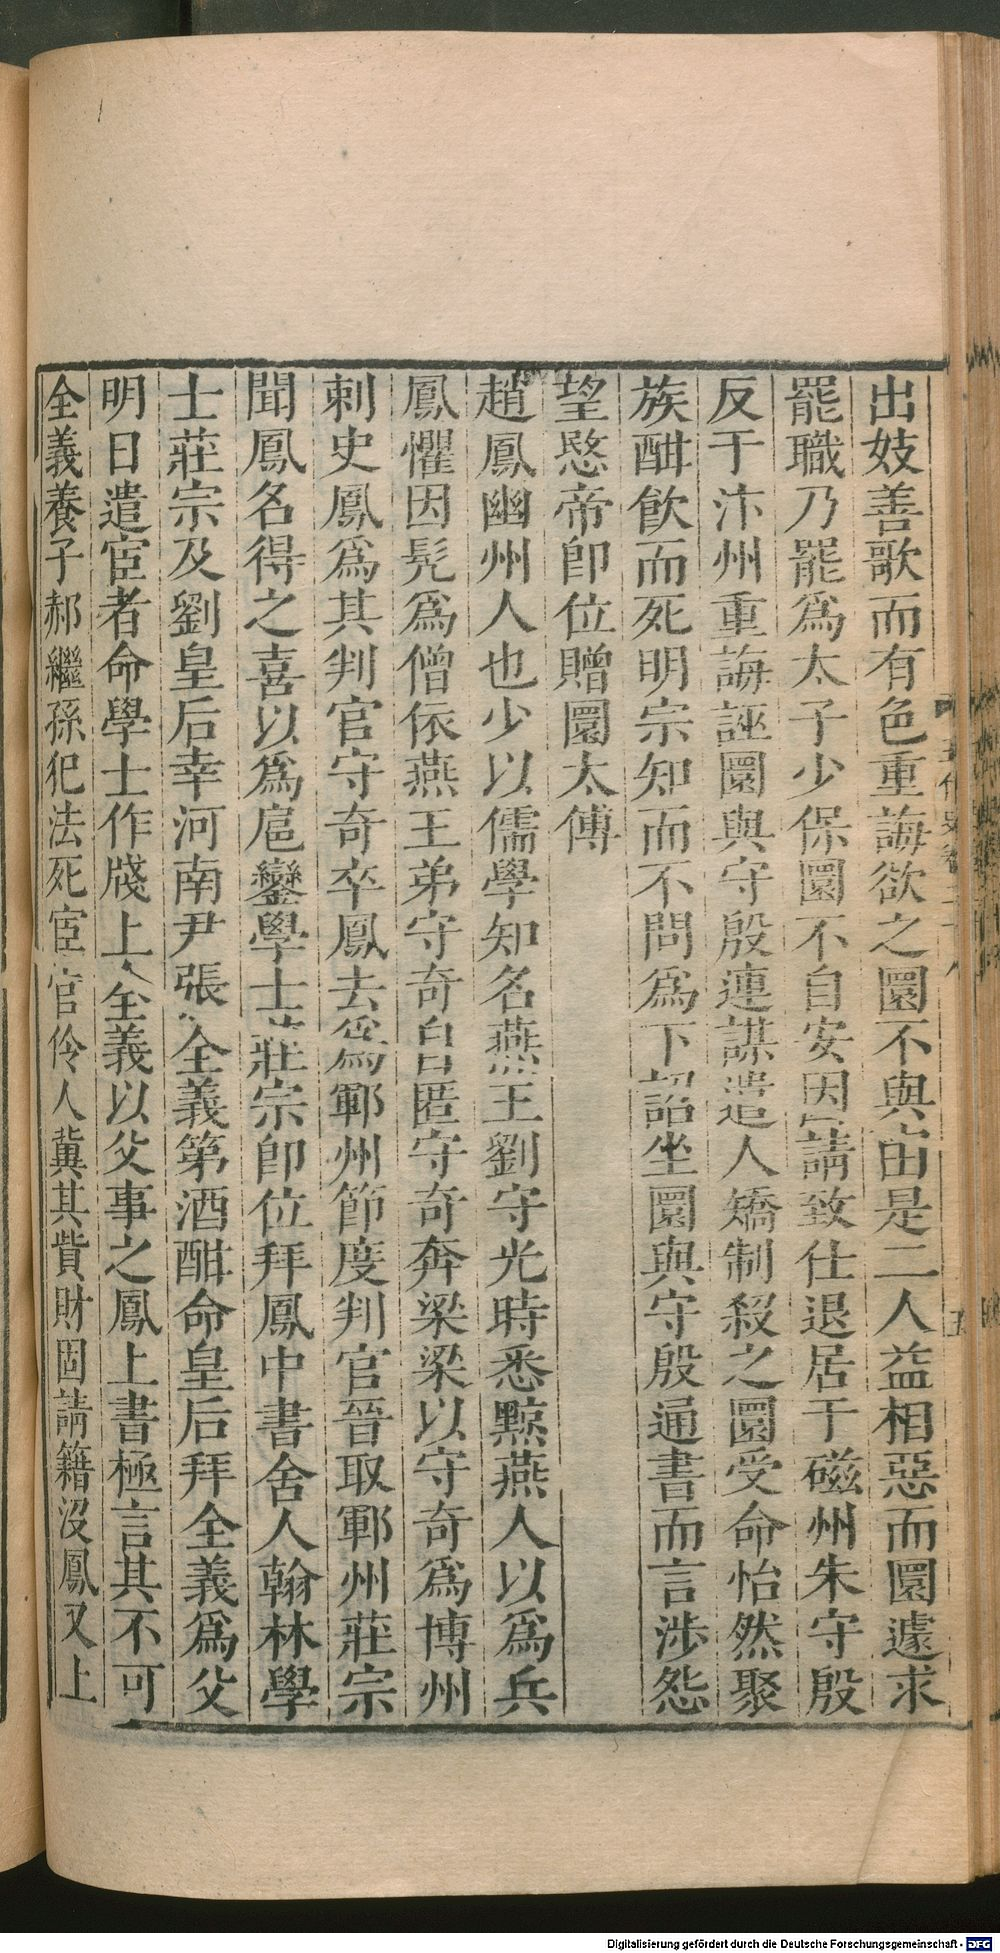 出妓善歌而有色重誨欲之圜不與由是二人益相惡而圜遽求
罷職乃罷爲太子少保圜不自安因請致仕退居于磁州朱守殷
反于汴州重誨誣圜與守殷連謀遣人矯制殺之圜受命怡然聚
族酣飮而死明宗知而不問爲下詔坐圜與守殷通書而言涉怨
望愍帝卽位贈圜太傅
趙鳳幽州人也少以儒學知名燕王劉守光時悉黥燕人以爲兵
鳳懼因髠爲僧依燕王弟守奇自匿守奇奔梁梁以守奇爲博州
刺史鳳爲其判官守奇卒鳳去爲鄆州節度判官晉取鄆州莊宗
聞鳳名得之喜以爲扈鑾學士莊宗卽位拜鳳中書舍人翰林學
士莊宗及劉皇后幸河南尹張全義第酒酣命皇后拜全義爲父
明日遣宦者命學士作牋上全義以父事之鳳上書極言其不可
全義養子郝繼孫犯法死宦官伶人冀其貲財固請籍沒鳳又上
五代史卷二十八
五
Digitalisierung gefördert durch die Deutsche Forschungsgemeinschaft - DFG